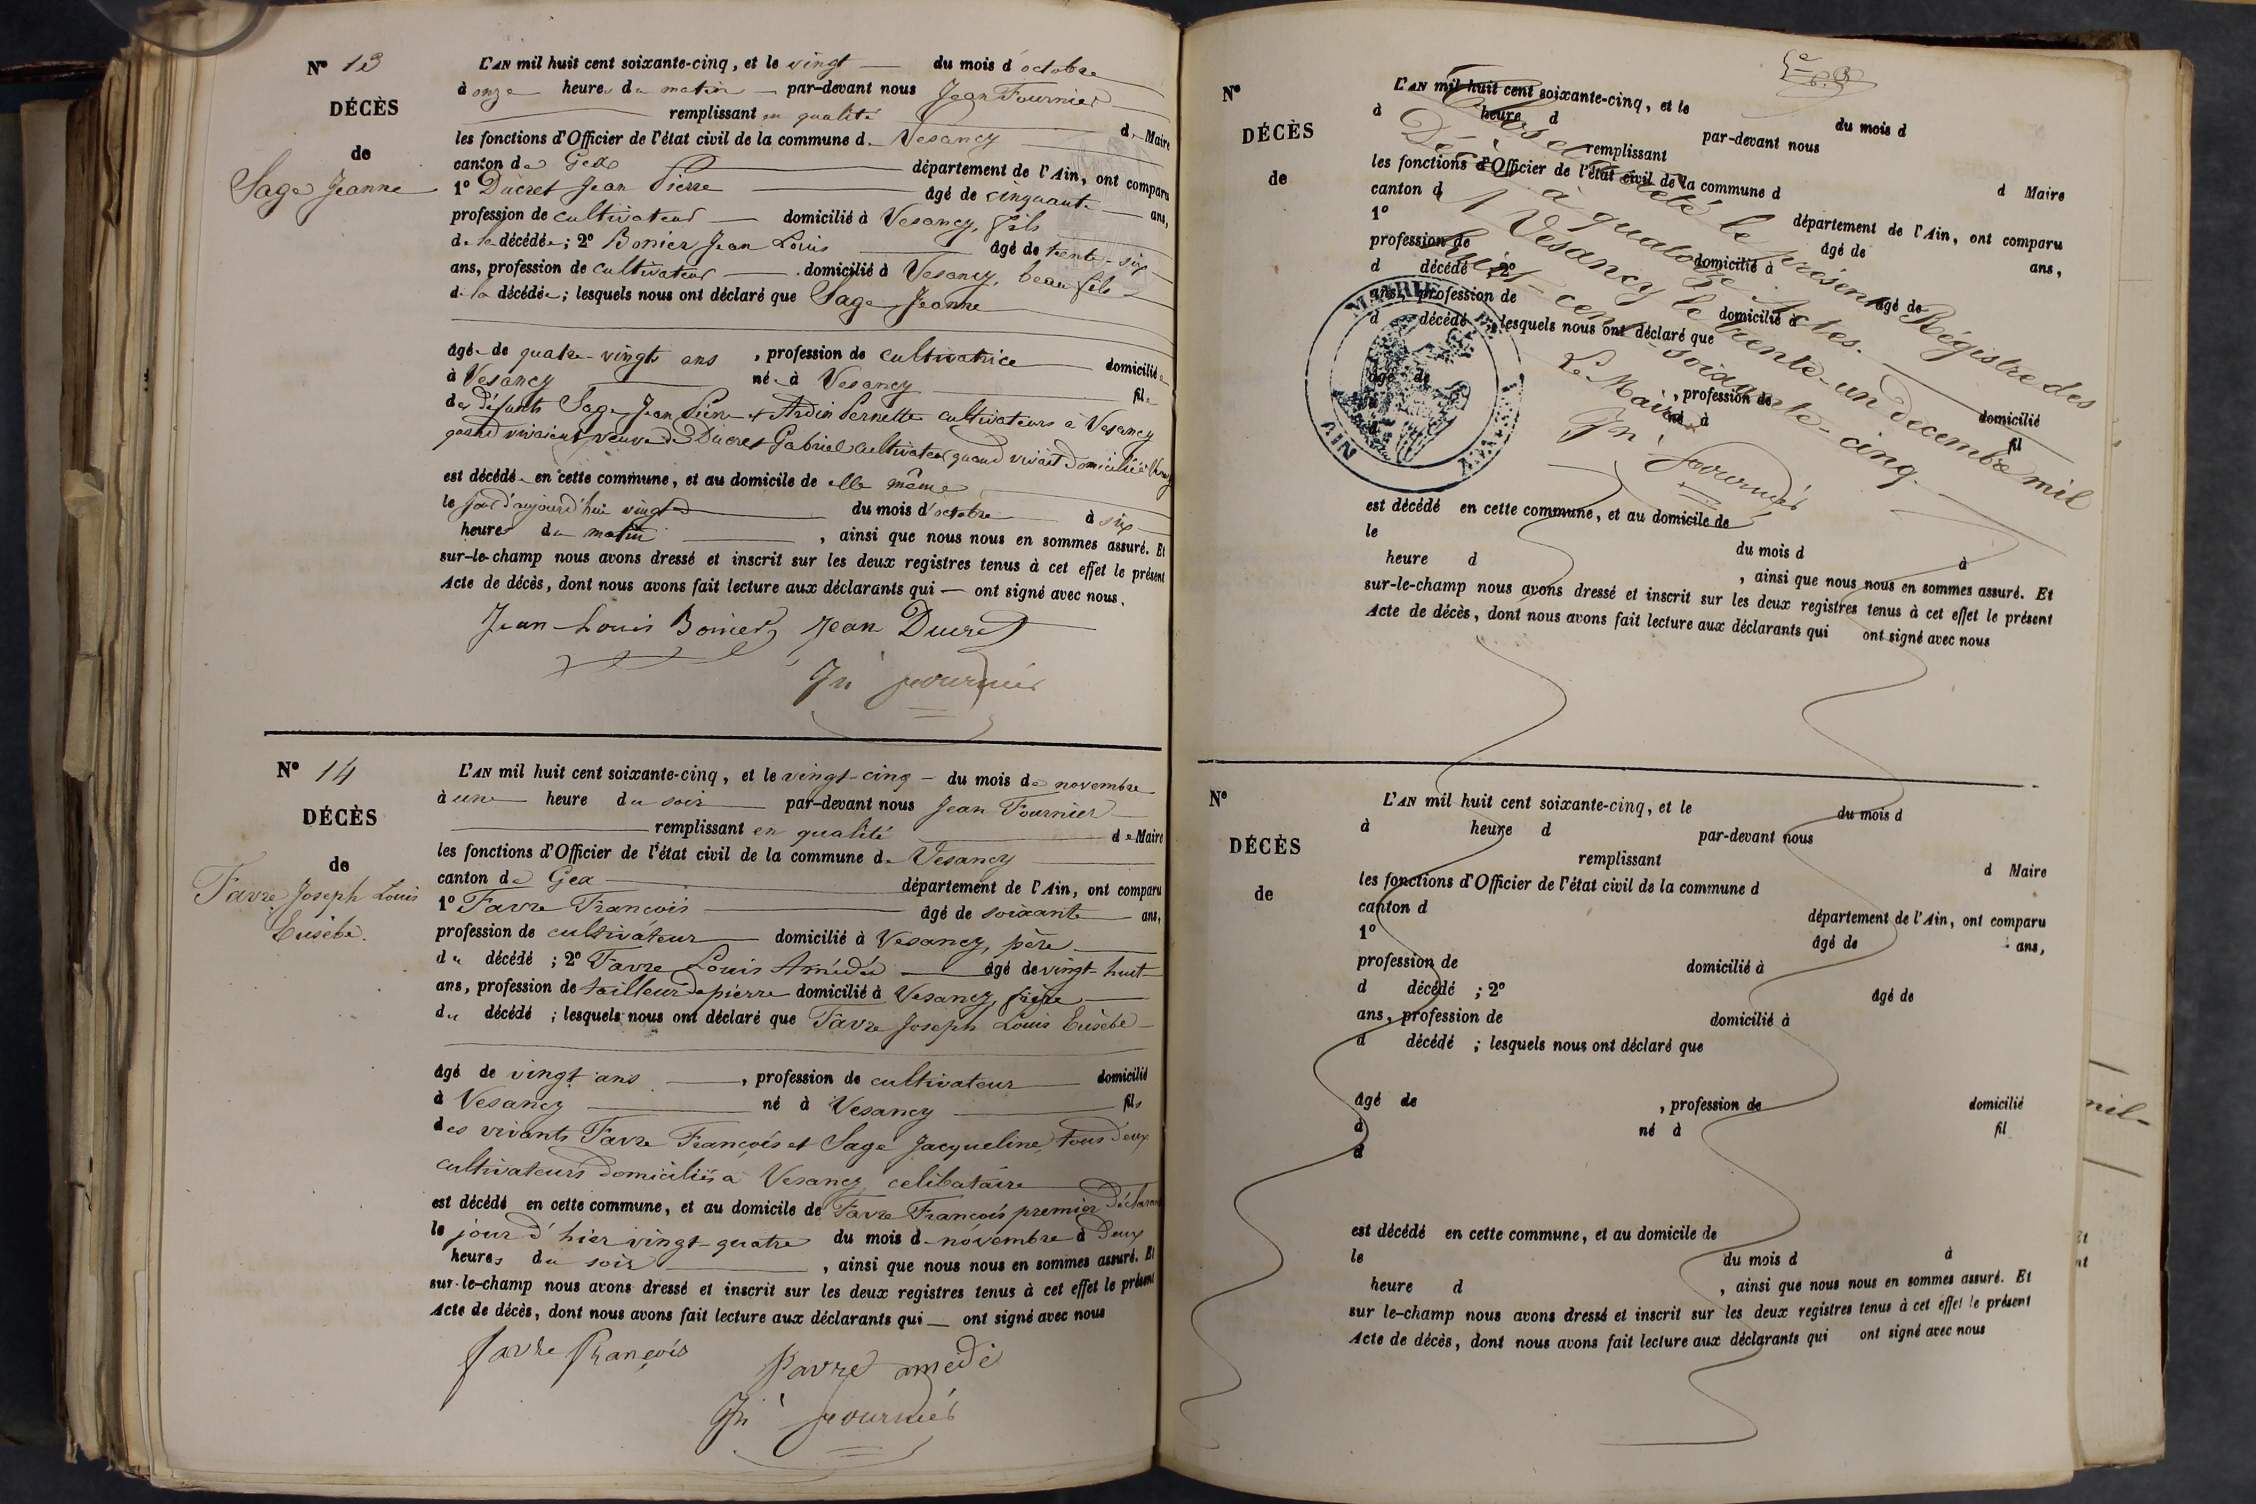 N° 13
DÉCÈS
de
Sage Jeanne
L'AN mil huit cent soixante-cinq, et le vingt — du mois d'octobre
à onze heures du matin — par-devant nous Jean Fournier
remplissant en qualité de Maire
les fonctions d'Officier de l'état civil de la commune de Vesancy
canton de Gex département de l'Ain, ont comparu
1° Ducret Jean Pierre âgé de cinquante ans,
profession de cultivateur — domicilié à Vesancy, fils
de la décédée; 2° Bonier Jean Louis âgé de trente-six
ans, profession de cultivateur — domicilié à Vesancy, beau fils
de la décédée; lesquels nous ont déclaré que Sage Jeanne
âgée de quatre-vingts ans, profession de cultivatrice domiciliée
à Vesancy née à Vesancy fille
des défunts Sage Jean Pierre et Ardin Pernette cultivateurs à Vesancy
quand vivaient, veuve de Ducret Gabriel cultivateur quand vivait domicilié à
est décédée en cette commune, et au domicile de elle même
le jour d'aujourd'hui vingt du mois d'octobre à six
heures du matin, ainsi que nous nous en sommes assuré. Et
sur-le-champ nous avons dressé et inscrit sur les deux registres tenus à cet effet le présent
Acte de décès, dont nous avons fait lecture aux déclarants qui — ont signé avec nous.
Jean Louis Bonier Jean Ducret
Jn Fournier
N° 14
DÉCÈS
de
Favre Joseph Louis
Eusèbe.
L'AN mil huit cent soixante-cinq, et le vingt-cinq — du mois de novembre
à une heure du soir par-devant nous Jean Fournier
remplissant en qualité de Maire
les fonctions d'Officier de l'état civil de la commune de Vesancy
canton de Gex département de l'Ain, ont comparu
1° Favre François âgé de soixante ans,
profession de cultivateur domicilié à Vesancy, père
du décédé; 2° Favre Louis Amédée âgé de vingt-huit
ans, profession de tailleur de pierre domicilié à Vesancy, frère
du décédé; lesquels nous ont déclaré que Favre Joseph Louis Eusèbe
âgé de vingt ans, profession de cultivateur domicilié
à Vesancy né à Vesancy fils
des vivants Favre François et Sage Jacqueline, tous deux
cultivateurs domiciliés à Vesancy, celibataire
est décédé en cette commune, et au domicile de Favre François premier déclarant
le jour d'hier vingt-quatre du mois de novembre à deux
heures du soir, ainsi que nous nous en sommes assuré. Et
sur-le-champ nous avons dressé et inscrit sur les deux registres tenus à cet effet le présent
Acte de décès, dont nous avons fait lecture aux déclarants qui — ont signé avec nous
favre françois
favre amédé
Jn fournier
N°
DÉCÈS
de
L'AN mil huit cent soixante-cinq, et le du mois d
à heure d par-devant nous
remplissant d Maire
les fonctions d'Officier de l'état civil de la commune d
canton d département de l'Ain, ont comparu
1° âgé de ans,
profession de domicilié à
d décédé ; 2° âgé de
ans, profession de domicilié à
d décédé ; lesquels nous ont déclaré que
âgé de , profession de domicilié
à né à fil
d
Clos et arrêté le présent Régistre des
Décès à quatorze Actes.
A Vesancy le trente-un décembre mil
huit-cent-soixante-cinq.
Le Maire
Jn Fournier
MAIRIE
AIN
est décédé en cette commune, et au domicile de
le du mois d à
heure d , ainsi que nous nous en sommes assuré. Et
sur-le-champ nous avons dressé et inscrit sur les deux registres tenus à cet effet le présent
Acte de décès, dont nous avons fait lecture aux déclarants qui ont signé avec nous
N°
DÉCÈS
de
L'AN mil huit cent soixante-cinq, et le du mois d
à heure d par-devant nous
remplissant d Maire
les fonctions d'Officier de l'état civil de la commune d
canton d département de l'Ain, ont comparu
1° âgé de ans,
profession de domicilié à
d décédé ; 2° âgé de
ans, profession de domicilié à
d décédé ; lesquels nous ont déclaré que
âgé de , profession de domicilié
à né à fil
d
est décédé en cette commune, et au domicile de
le du mois d à
heure d , ainsi que nous nous en sommes assuré. Et
sur le-champ nous avons dressé et inscrit sur les deux registres tenus à cet effet le présent
Acte de décès, dont nous avons fait lecture aux déclarants qui ont signé avec nous